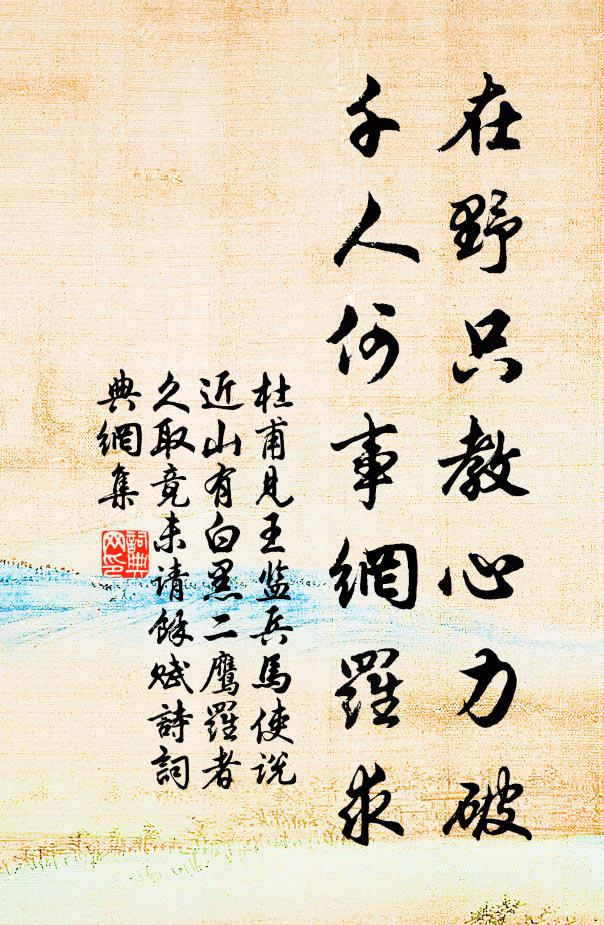 在野只教心力破
千人何事網羅求
杜甫見王监兵馬使说
近山有白黑二鹰羅者
久取竟未请餘赋詩詞
典網集
詞典
网印